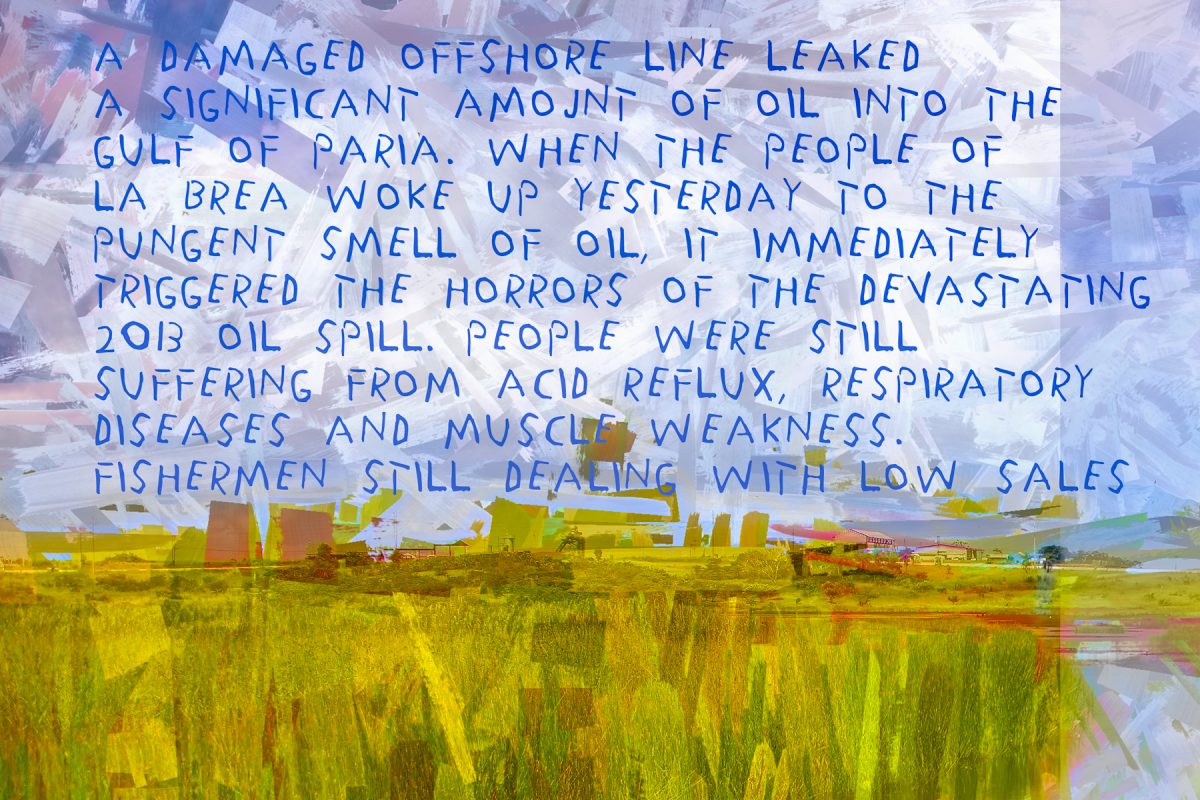 A DAMAGED OFFSHORE LINE LEAKED
A SIGNIFICANT AMOJNT OF OIL INTO THE
GULF OF PARIA. WHEN THE PEOPLE OF
LA BREA WOKE UP YESTERDAY TO THE
PUNGENT SMELL OF OIL, IT IMMEDIATELY
TRIGGERED THE HORRORS OF THE DEVASTATING
2013 OIL SPILL. PEOPLE WERE STILL
SUFFERING FROM ACID REFLUX, RESPIRATORY
DISEASES AND MUSCLE WEAKNESS.
FISHERMEN STILL DEALING WITH LOW SALES